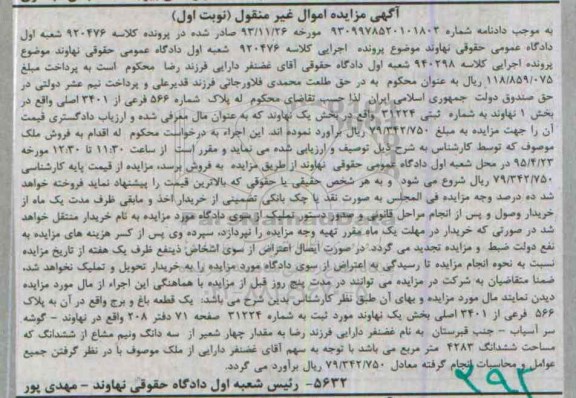 آگهی مزایده اموال غیر منقول (نوبت اول)
به موجب دادنامه شماره ۹۳۰۹۹۷۸۵۲۰۱۰۱۸۰۲ مورخه ۹۳/۱۱/۲۶ صادر شده در پرونده کلاسه ۹۲۰۴۷۶ شعبه اول
دادگاه عمومی حقوقی نهاوند موضوع پرونده اجرایی کلاسه ۹۲۰۴۷۶ شعبه اول دادگاه عمومی حقوقی نهاوند موضوع
پرونده اجرایی کلاسه ۹۴۰۲۹۸ شعبه اول دادگاه حقوقی آقای غضنفر دارایی فرزند رضا محکوم است به پرداخت مبلغ
۱۱۸/۸۵۹/۰۷۵ ریال به عنوان محکوم به در حق طلعت محمدی فلاورجانی فرزند قدیرعلی و پرداخت نیم عشر دولتی در
حق صندوق دولت جمهوری اسلامی ایران بنا به تقاضای محکوم له پلاک شماره ۵۶۶ فرعی از ۳۴۰۱ اصلی واقع در
بخش ۱ نهاوند به شماره ثبتی ۳۱۲۲۴ واقع در بخش یک نهاوند که به عنوان مال معرفی شده و ارزیاب دادگستری قیمت
آن را جهت مزایده به مبلغ ۷۹/۳۴۲/۷۵۰ ریال برآورد نموده اند. این اجراء به درخواست محکوم له اقدام به فروش ملک
موصوف که توسط کارشناس به شرح ذیل توصیف و ارزیابی شده می نماید و مقرر است از ساعت ۱۱:۳۰ تا ۱۲:۳۰ مورخه
۹۵/۴/۲۳ در محل شعبه اول دادگاه عمومی حقوقی نهاوند از طریق مزایده به فروش برسد، مزایده از قیمت پایه کارشناسی
۷۹/۳۴۲/۷۵۰ ریال شروع می شود و به هر شخص حقیقی یا حقوقی که بالاترین قیمت را پیشنهاد نماید فروخته خواهد
شد ده درصد وجه مزایده فی المجلس به صورت نقد یا چک بانکی تضمینی از خریدار اخذ و مابقی ظرف مدت یک ماه از
خریدار وصول و پس از انجام مراحل قانونی و صدور دستور تملیک از سوی دادگاه مورد مزایده به نام خریدار منتقل خواهد
شد در صورتی که خریدار در مهلت یک ماه مقرر تهیه وجه مزایده را نپردازد، سپرده وی پس از کسر هزینه های مزایده به
نفع دولت ضبط و مزایده تجدید می گردد در صورت ایصال اعتراض از سوی اشخاص ذینفع ظرف یک هفته از تاریخ مزایده
نسبت به نحوه انجام مزایده تا رسیدگی به اعتراض از سوی دادگاه مورد مزایده را به خریدار تحویل و تملیک نخواهد شد.
ضمنا متقاضیان به شرکت در مزایده می توانند در مدت پنج روز قبل از مزایده با هماهنگی این اجراء از مال مورد مزایده
دیدن نمایند مال مورد مزایده و بهای آن طبق نظر کارشناس بدین شرح می باشد: یک قطعه باغ و برج واقع در آن به پلاک
۵۶۶ فرعی از ۳۴۰۱ اصلی بخش یک نهاوند مورد ثبت به شماره ۳۱۲۲۴ صفحه ۷۱ دفتر ۲۰۸ واقع در نهاوند - گوشه
سر آسیاب - جنب قبرستان به نام غضنفر دارایی فرزند رضا به مقدار چهار شعیر از سه دانگ ونیم مشاع از ششدانگ که
مساحت ششدانگ ۴۲۸۳ متر مربع می باشد با توجه به سهم آقای غضنفر دارایی از ملک موصوف با در نظر گرفتن جمیع
عوامل و محاسبات انجام گرفته معادل ۷۹/۳۴۲/۷۵۰ ریال برآورد می گردد.
۵۶۳۲- رئیس شعبه اول دادگاه حقوقی نهاوند - مهدی پور
۲۹۲